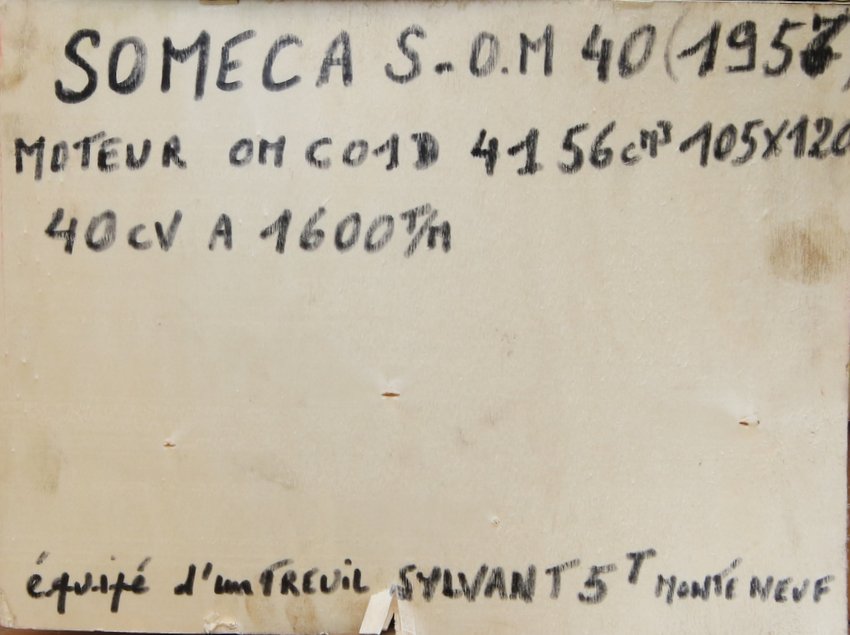 SOMECA S-O.M 40 (1957)
MOTEUR OM CO1D 4156cm³ 105X120
40CV A 1600T/M
équipé d'un TREUIL SYLVANT 5T MONTÉ NEUF